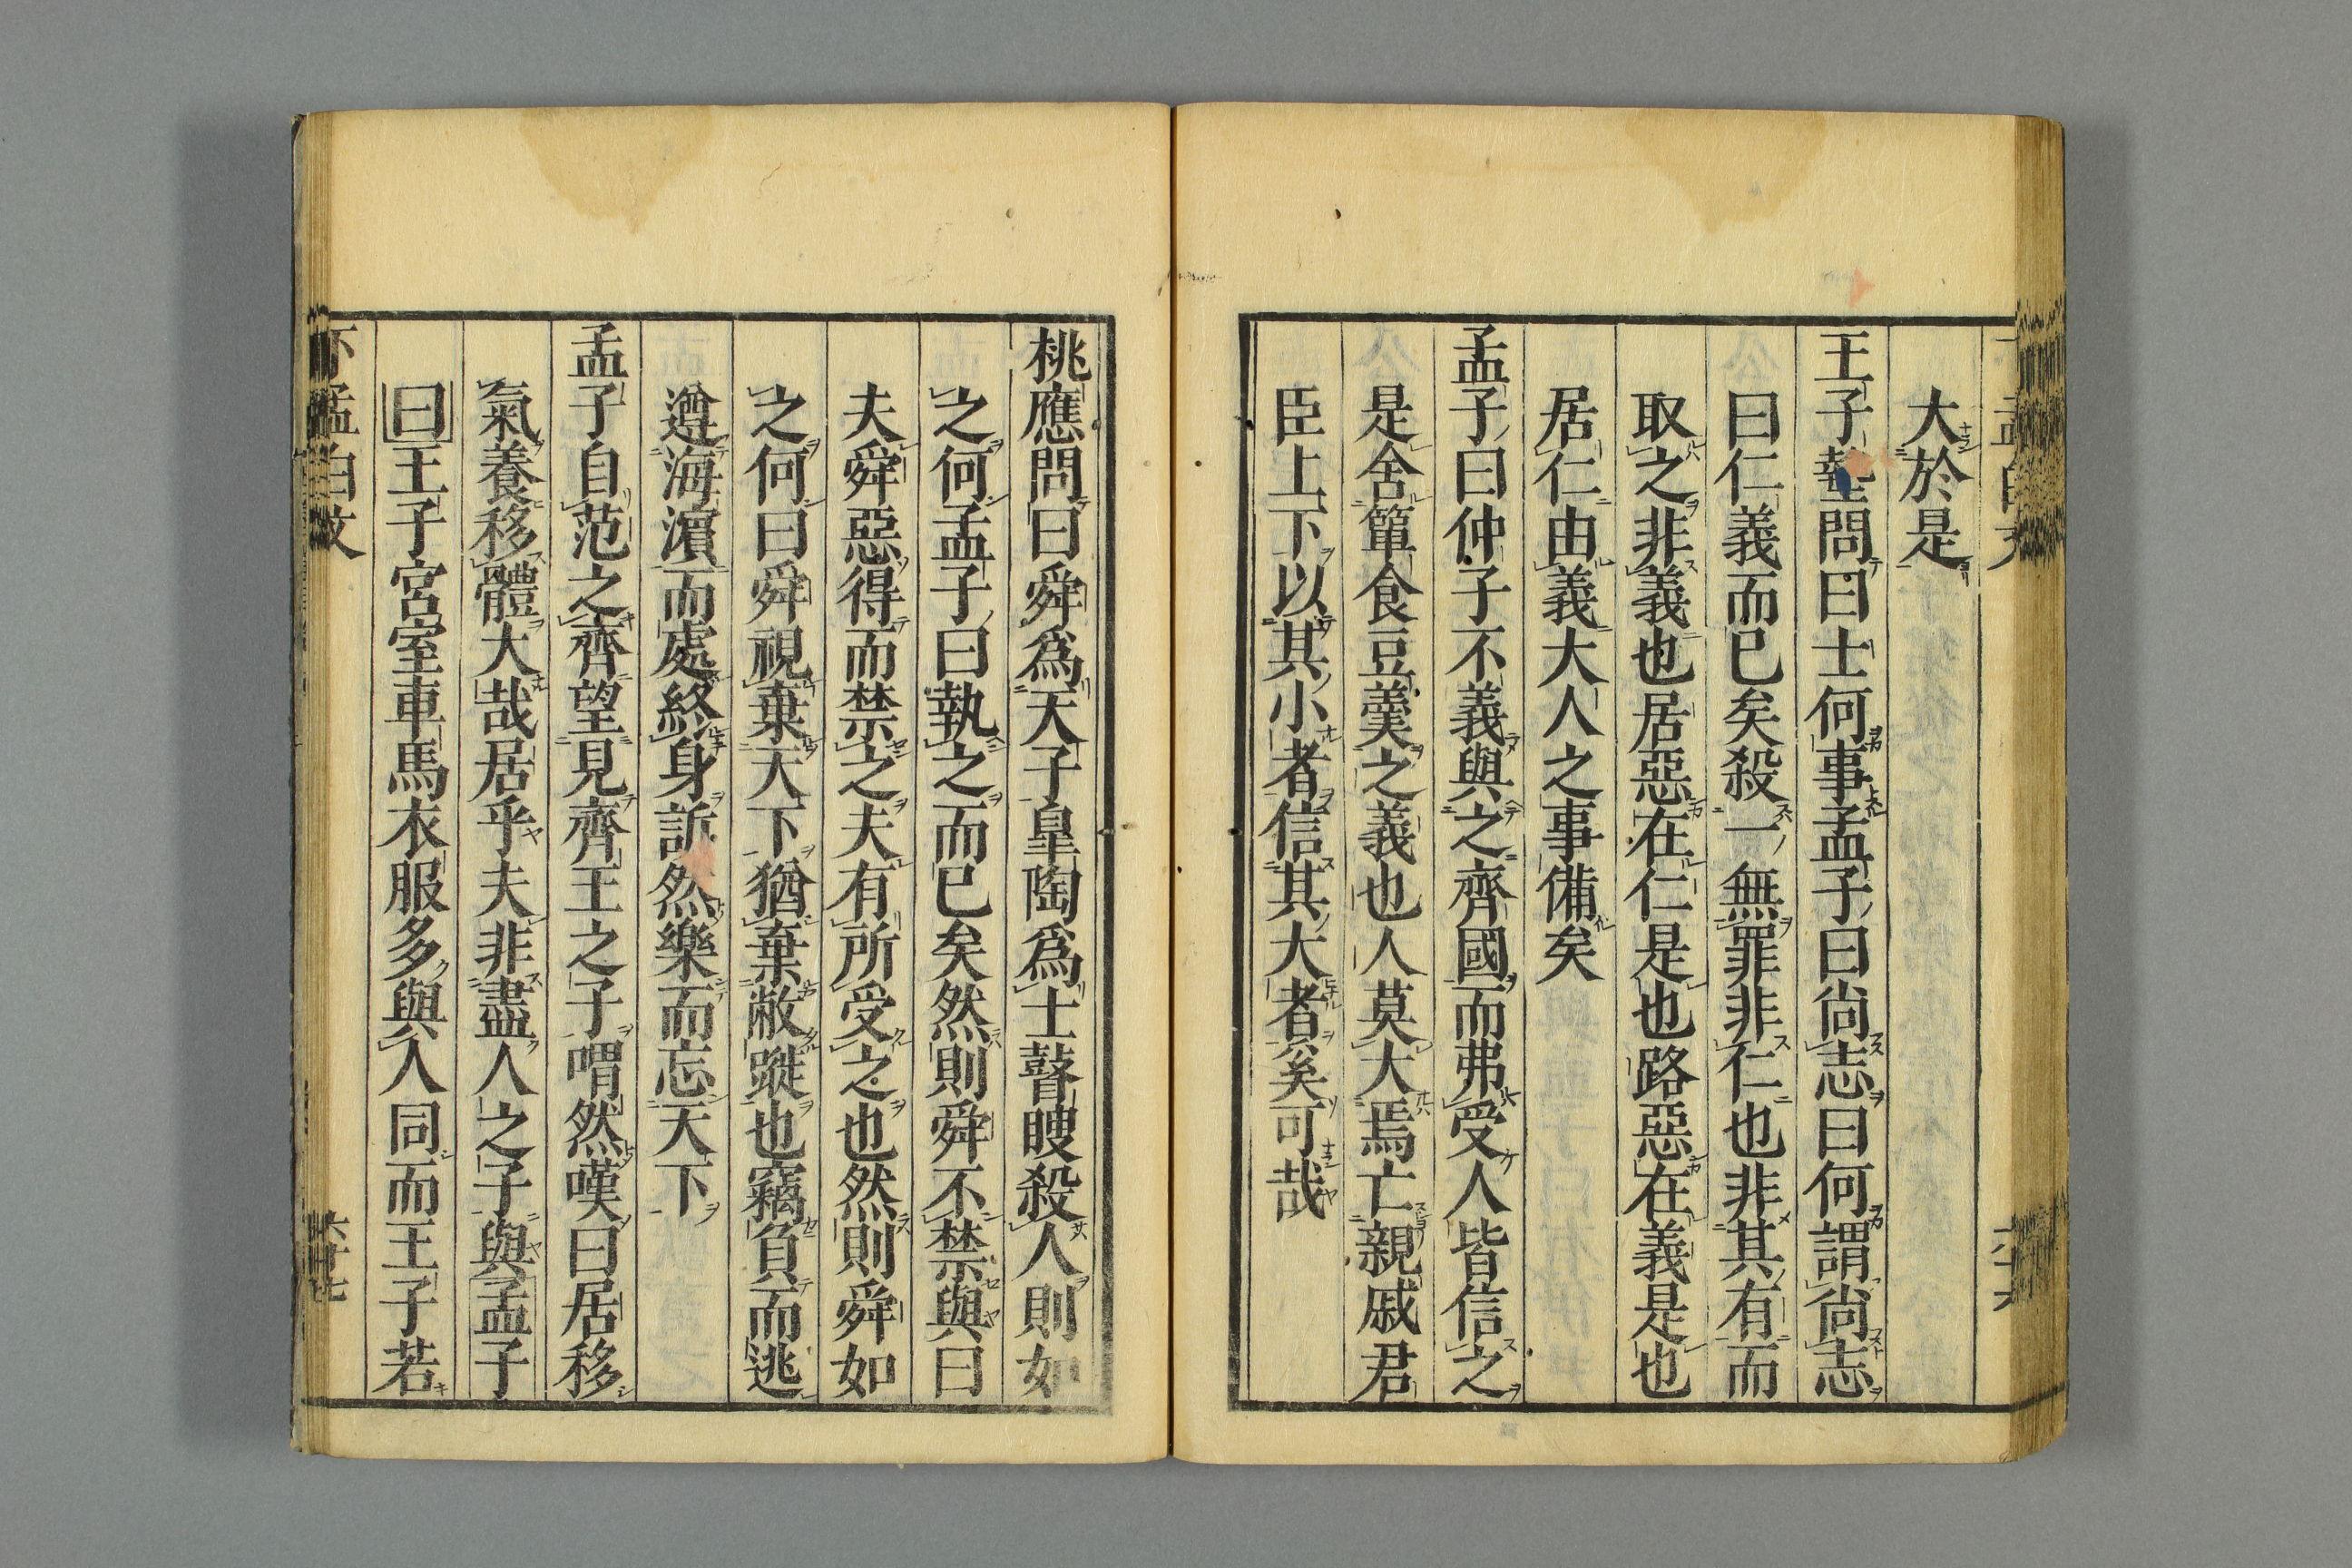 大於是
王子墊問曰士何事孟子曰尚志曰何謂尚志
曰仁義而已矣殺一無罪非仁也非其有而
取之非義也居惡在仁是也路惡在義是也
居仁由義大人之事備矣
孟子曰仲子不義與之齊國而弗受人皆信之
是舍簞食豆羹之義也人莫大焉亡親戚君
臣上下以其小者信其大者奚可哉
桃應問曰舜爲天子皐陶爲士瞽瞍殺人則如
之何孟子曰執之而已矣然則舜不禁與曰
夫舜惡得而禁之夫有所受之也然則舜如
之何曰舜視棄天下猶棄敝蹝也竊負而逃
遵海濱而處終身訴然樂而忘天下
孟子自范之齊望見齊王之子喟然嘆曰居移
氣養移體大哉居乎夫非盡人之子與孟子
曰王子宮室車馬衣服多與人同而王子若